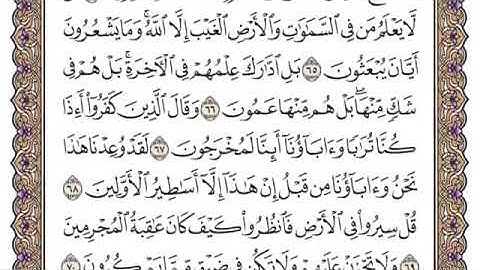 لَّا يَعْلَمُ مَن فِى السَّمَٰوَٰتِ وَالْأَرْضِ الْغَيْبَ إِلَّا اللَّهُ ۚ وَمَا يَشْعُرُونَ
أَيَّانَ يُبْعَثُونَ ٦٥ بَلِ ادَّٰرَكَ عِلْمُهُمْ فِى الْآخِرَةِ ۚ بَلْ هُمْ فِى
شَكٍّ مِّنْهَا ۖ بَلْ هُم مِّنْهَا عَمُونَ ٦٦ وَقَالَ الَّذِينَ كَفَرُوٓا۟ أَءِذَا
كُنَّا تُرَٰبًا وَءَابَآؤُنَآ أَئِنَّا لَمُخْرَجُونَ ٦٧ لَقَدْ وُعِدْنَا هَٰذَا
نَحْنُ وَءَابَآؤُنَا مِن قَبْلُ إِنْ هَٰذَآ إِلَّآ أَسَٰطِيرُ الْأَوَّلِينَ ٦٨
قُلْ سِيرُوا۟ فِى الْأَرْضِ فَانظُرُوا۟ كَيْفَ كَانَ عَٰقِبَةُ الْمُجْرِمِينَ
٦٩ وَلَا تَحْزَنْ عَلَيْهِمْ وَلَا تَكُن فِى ضَيْقٍ مِّمَّا يَمْكُرُونَ ٧٠